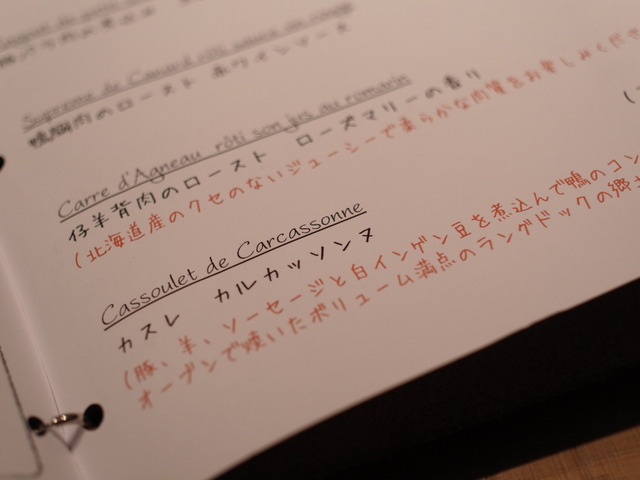 Supreme de Canard rôti sauce
鴨胸肉のロースト 赤ワインソース
Carre d'Agneau rôti son jus au romarin
仔羊背肉のロースト ローズマリーの香り
(北海道産のクセのないジューシーで柔らかな肉質をお楽しみくださ
Cassoulet de Carcassonne
カスレ カルカッソンヌ
(豚、羊、ソーセージと白インゲン豆を煮込んで鴨のコン
オーブンで焼いたボリューム満点のラングドックの郷土